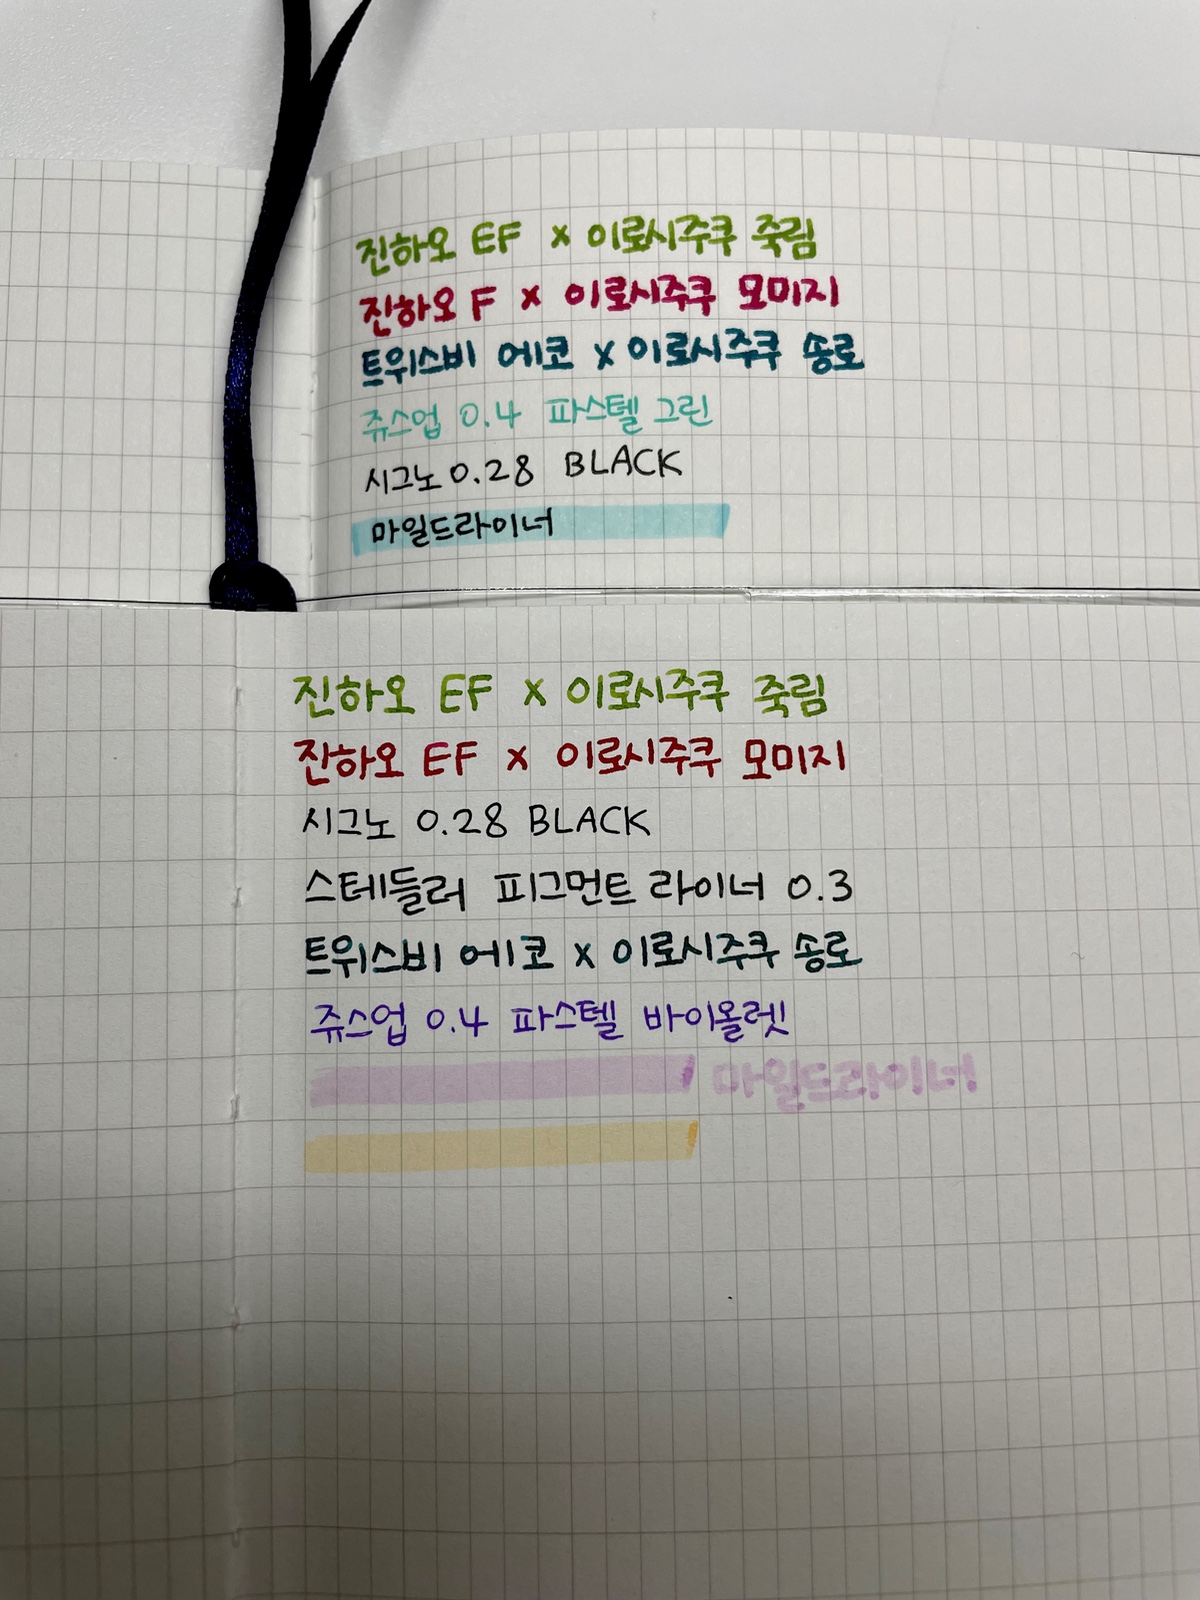 진하오 EF x 이로시주쿠 죽림
진하오 F x 이로시주쿠 모미지
트위스비 에코 x 이로시주쿠 송로
쥬스업 0.4 파스텔 그린
시그노 0.28 BLACK
마일드라이너
진하오 EF x 이로시주쿠 죽림
진하오 EF x 이로시주쿠 모미지
시그노 0.28 BLACK
스테들러 피그먼트 라이너 0.3
트위스비 에코 x 이로시주쿠 송로
쥬스업 0.4 파스텔 바이올렛
마일드라이너